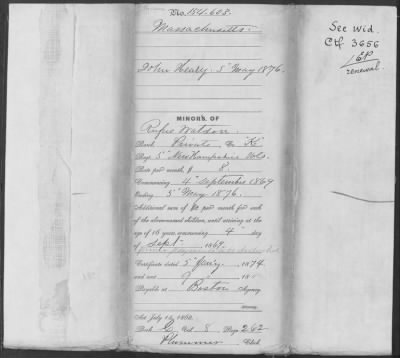 No. 154.608.
Massachusetts.
John Heary. 5" May 1876.
MINORS OF
Rufus Watson.
Rank Private, Co "K"
Reg. 5" New Hampshire Vols.
Rate per month, $ 8.
Commencing 4" September 1867
Ending 5" May 1876.
Additional sum of $2 per month for each
of the above-named children, until arriving at the
age of 16 years, commencing 4" day
of Sept. 1867.
Certificate dated 5" Jan'y. 1874
and sent 18
Payable at Boston Agency.
Act July 14, 1862.
Book G, Vol. 8 Page 262
Plummer Clerk
See Wid.
Ctf. 3656
EP
renewal.